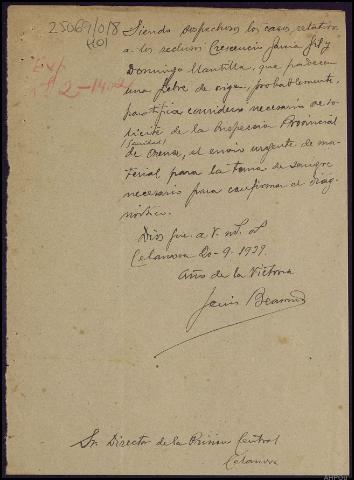 25069/018
H01
Siendo sospechosos los casos, relativos
a los reclusos Crescencio Garcia Gil y
Domingo Mantilla, que padecen
una fiebre de origen, probablemente,
paratifica considero necesario se so-
licite de la Inspección Provincial
(Sanidad)
de Orense, el envio urgente de ma-
terial para la toma de sangre
necesario para confirmar el diag-
nostico.
Dios gue. a V. ms. as
Celanova 20-9-1939
Año de la Victoria
Sr. Director de la Prision Central
Celanova
AHPOU